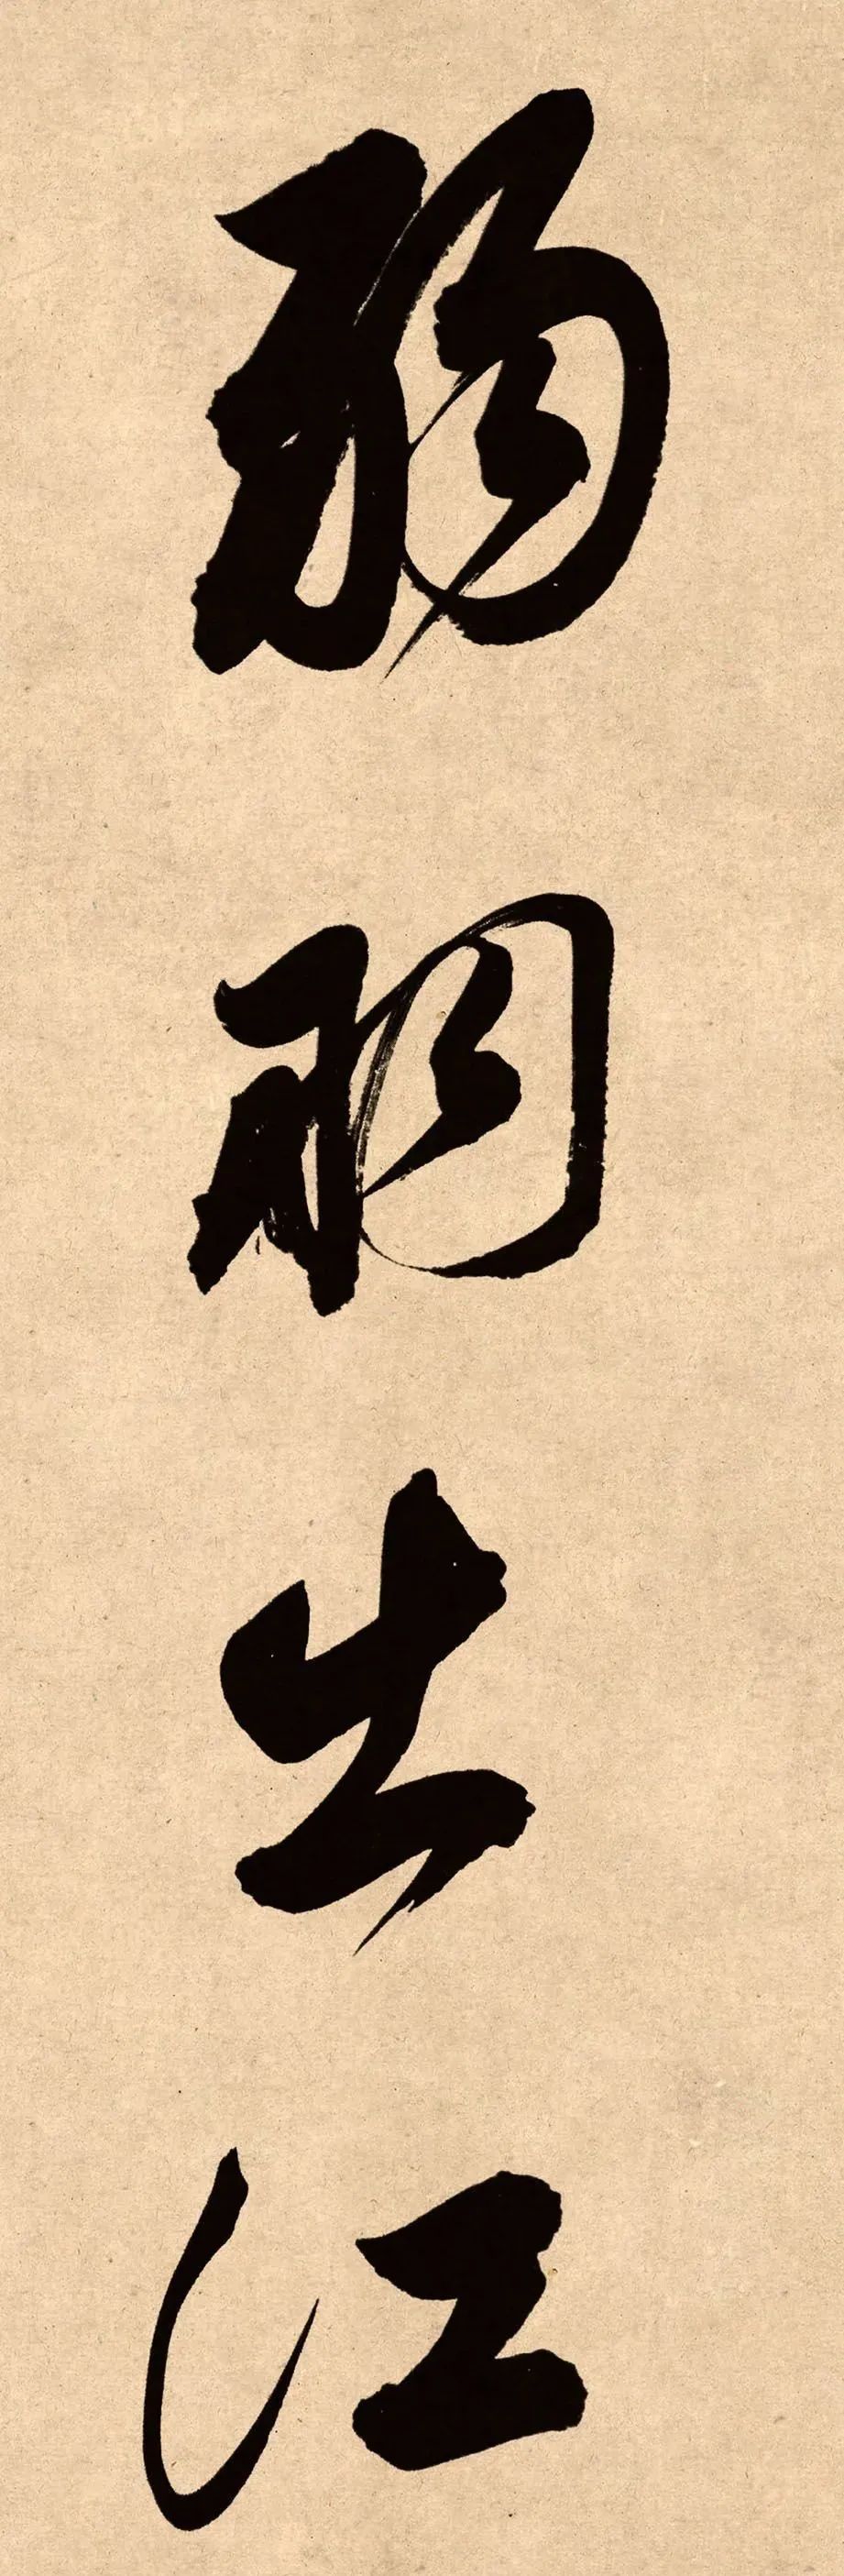 弱羽出江